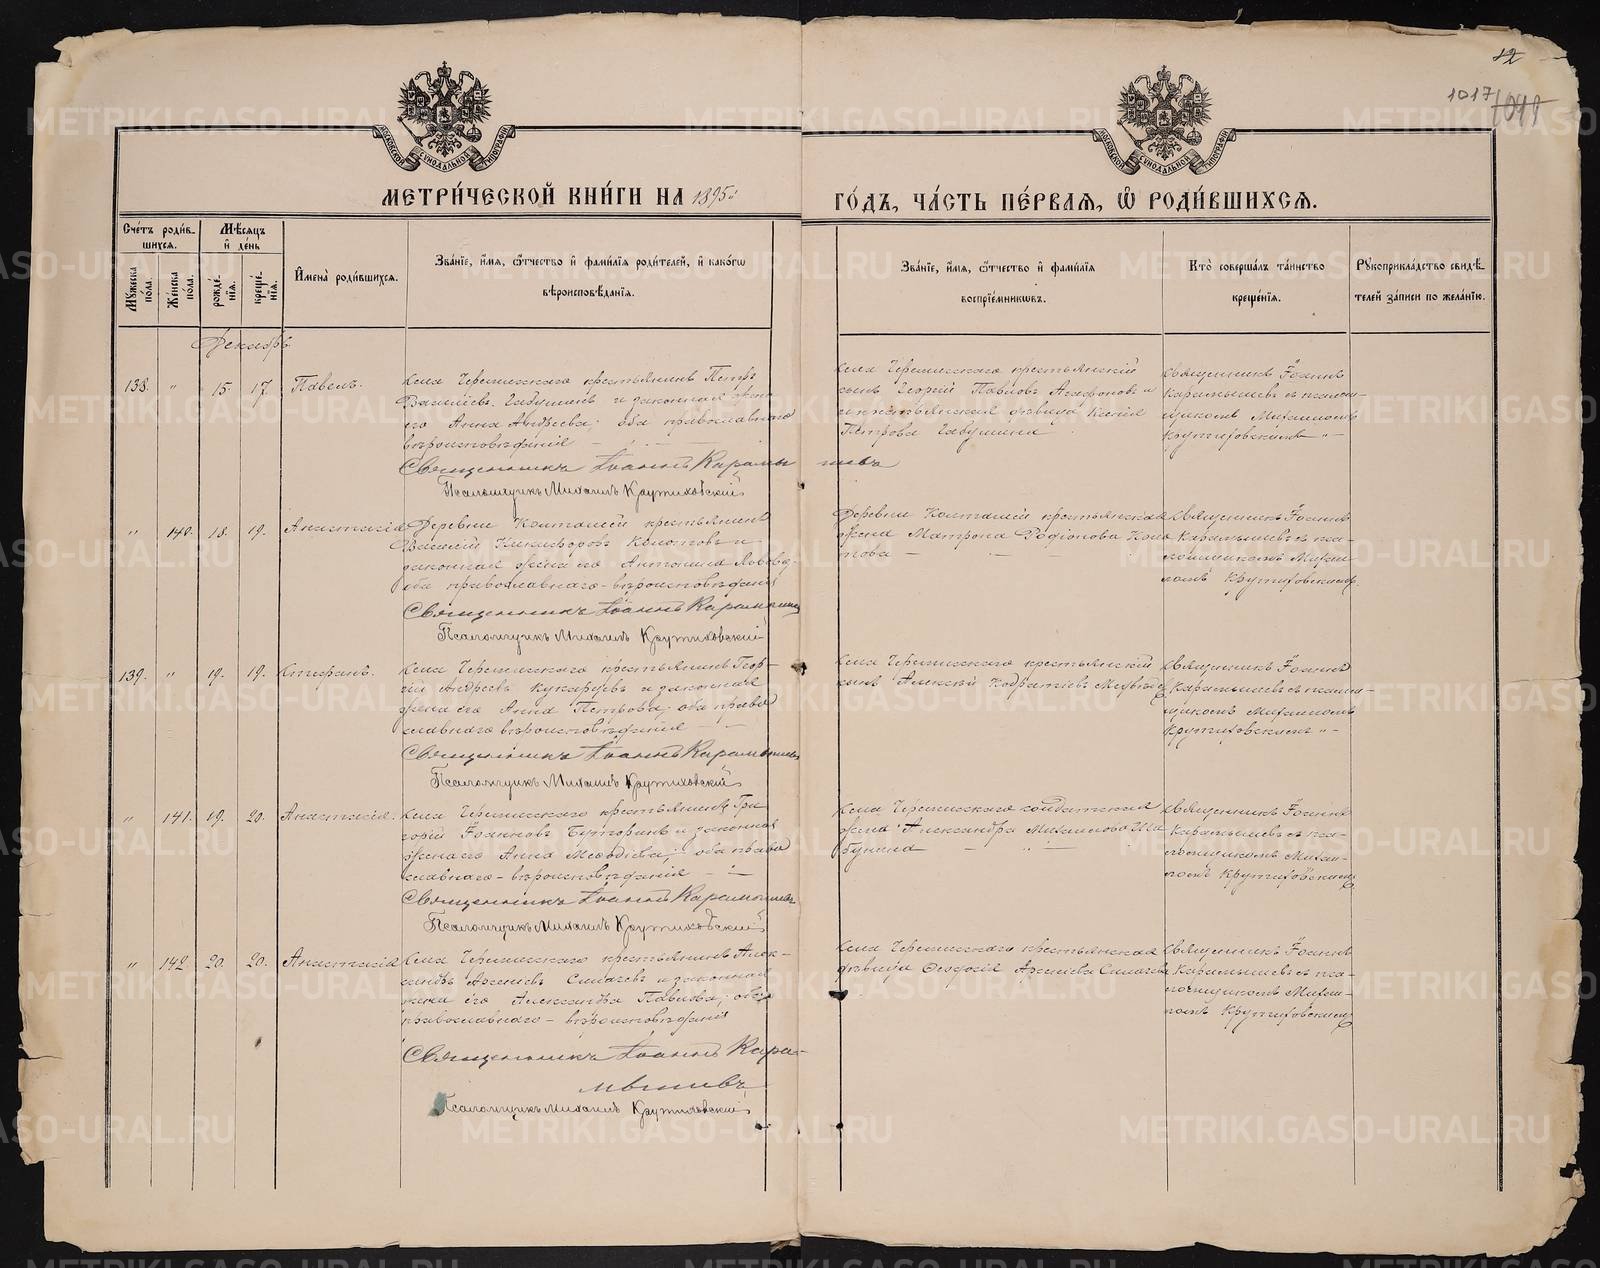 12
1017
МЕТРИ́ЧЕСКОЙ КНИ́ГИ НА 1895
ГО́ДЪ, ЧА́СТЬ ПЕ́РВАЯ, Ѽ РОДИ́ВШИХСЯ.
МОСКОВСКОЙ СѴНОДАЛЬНОЙ ТИПОГРАФІИ
МОСКОВСКОЙ СѴНОДАЛЬНОЙ ТИПОГРАФІИ
Счетъ родив-
шихся.
Мѣсяцъ
и день
Мужеска пола.
Женска пола.
рожде-нія.
креще-нія.
Имена родившихся.
Званіе, имя, ѻтчество и фамилія родителей, и какогѡ
вѣроисповѣданія.
Званіе, имя, ѻтчество и фамилія
воспріемникѡвъ.
Кто совершалъ таинство
крещенія.
Рукоприкладство свидѣ-
телей записи по желанію.
Декабрь
138. " 15. 17. Павелъ.
села Черемисскаго крестьянинъ Петръ
Василіевъ Габушинъ и законная жена
его Анна Андреева; оба православнаго
вѣроисповѣданія
Священникъ Іоаннъ Карамышевъ
Псаломщикъ Михаилъ Крутиховскій
села Черемисскаго крестьянскій
сынъ Георгій Павловъ Агафоновъ и
крестьянская дѣвица Ксенія
Петрова Габушина
священникъ Іоаннъ
Карамышевъ съ псалом-
щикомъ Михаиломъ
Крутиховскимъ
" 140. 18. 19. Анастасія
Деревни Колташей крестьянинъ
Василій Никифоровъ Колотовъ и
законная жена его Антонина Львова,
оба православнаго - вѣроисповѣданія
Священникъ Іоаннъ Карамышевъ
Псаломщикъ Михаилъ Крутиховскій
Деревни Колташей крестьянская
жена Матрона Родіонова Коло
това
священникъ Іоаннъ
Карамышевъ съ пса-
ломщикомъ Михаи
ломъ Крутиховскимъ
139. " 19. 19. Стефанъ.
села Черемисскаго крестьянинъ Геор-
гій Андреевъ Кукарцевъ и законная
жена его Анна Петрова; оба право
славнаго вѣроисповѣданія
Священникъ Іоаннъ Карамышевъ
Псаломщикъ Михаилъ Крутиховскій
села Черемисскаго крестьянскій
сынъ Алексѣй Кодратіевъ
священникъ Іоаннъ
Карамышевъ съ псалом-
щикомъ Михаиломъ
Крутиховскимъ
" 141. 19. 20. Анастасія.
села Черемисскаго крестьянинъ Гри
горій Іоанновъ Буторинъ и законная
жена его Анна Меѳодіева; оба право
славнаго - вѣроисповѣданія
Священникъ Іоаннъ Карамышевъ
Псаломщикъ Михаилъ Крутиховскій
села Черемисскаго солдатская
жена Александра Михаилова Ша
бунина
священникъ Іоаннъ
Карамышевъ съ пса-
ломщикомъ Михаи-
ломъ Крутиховскимъ
" 142. 20. 20. Анастасія
села Черемисскаго крестьянинъ Алек-
сандръ Арсеніевъ Силачевъ и законная
жена его Александра Павлова; оба
православнаго - вѣроисповѣданія
Священникъ Іоаннъ Кара-
мышевъ
Псаломщикъ Михаилъ Крутиховскій
села Черемисскаго крестьянская
дѣвица Ѳеодосія Арсеніева Силачева
священникъ Іоаннъ
Карамышевъ съ пса-
ломщикомъ Михаи-
ломъ Крутиховскимъ
METRIKI.GASO-URAL.RU